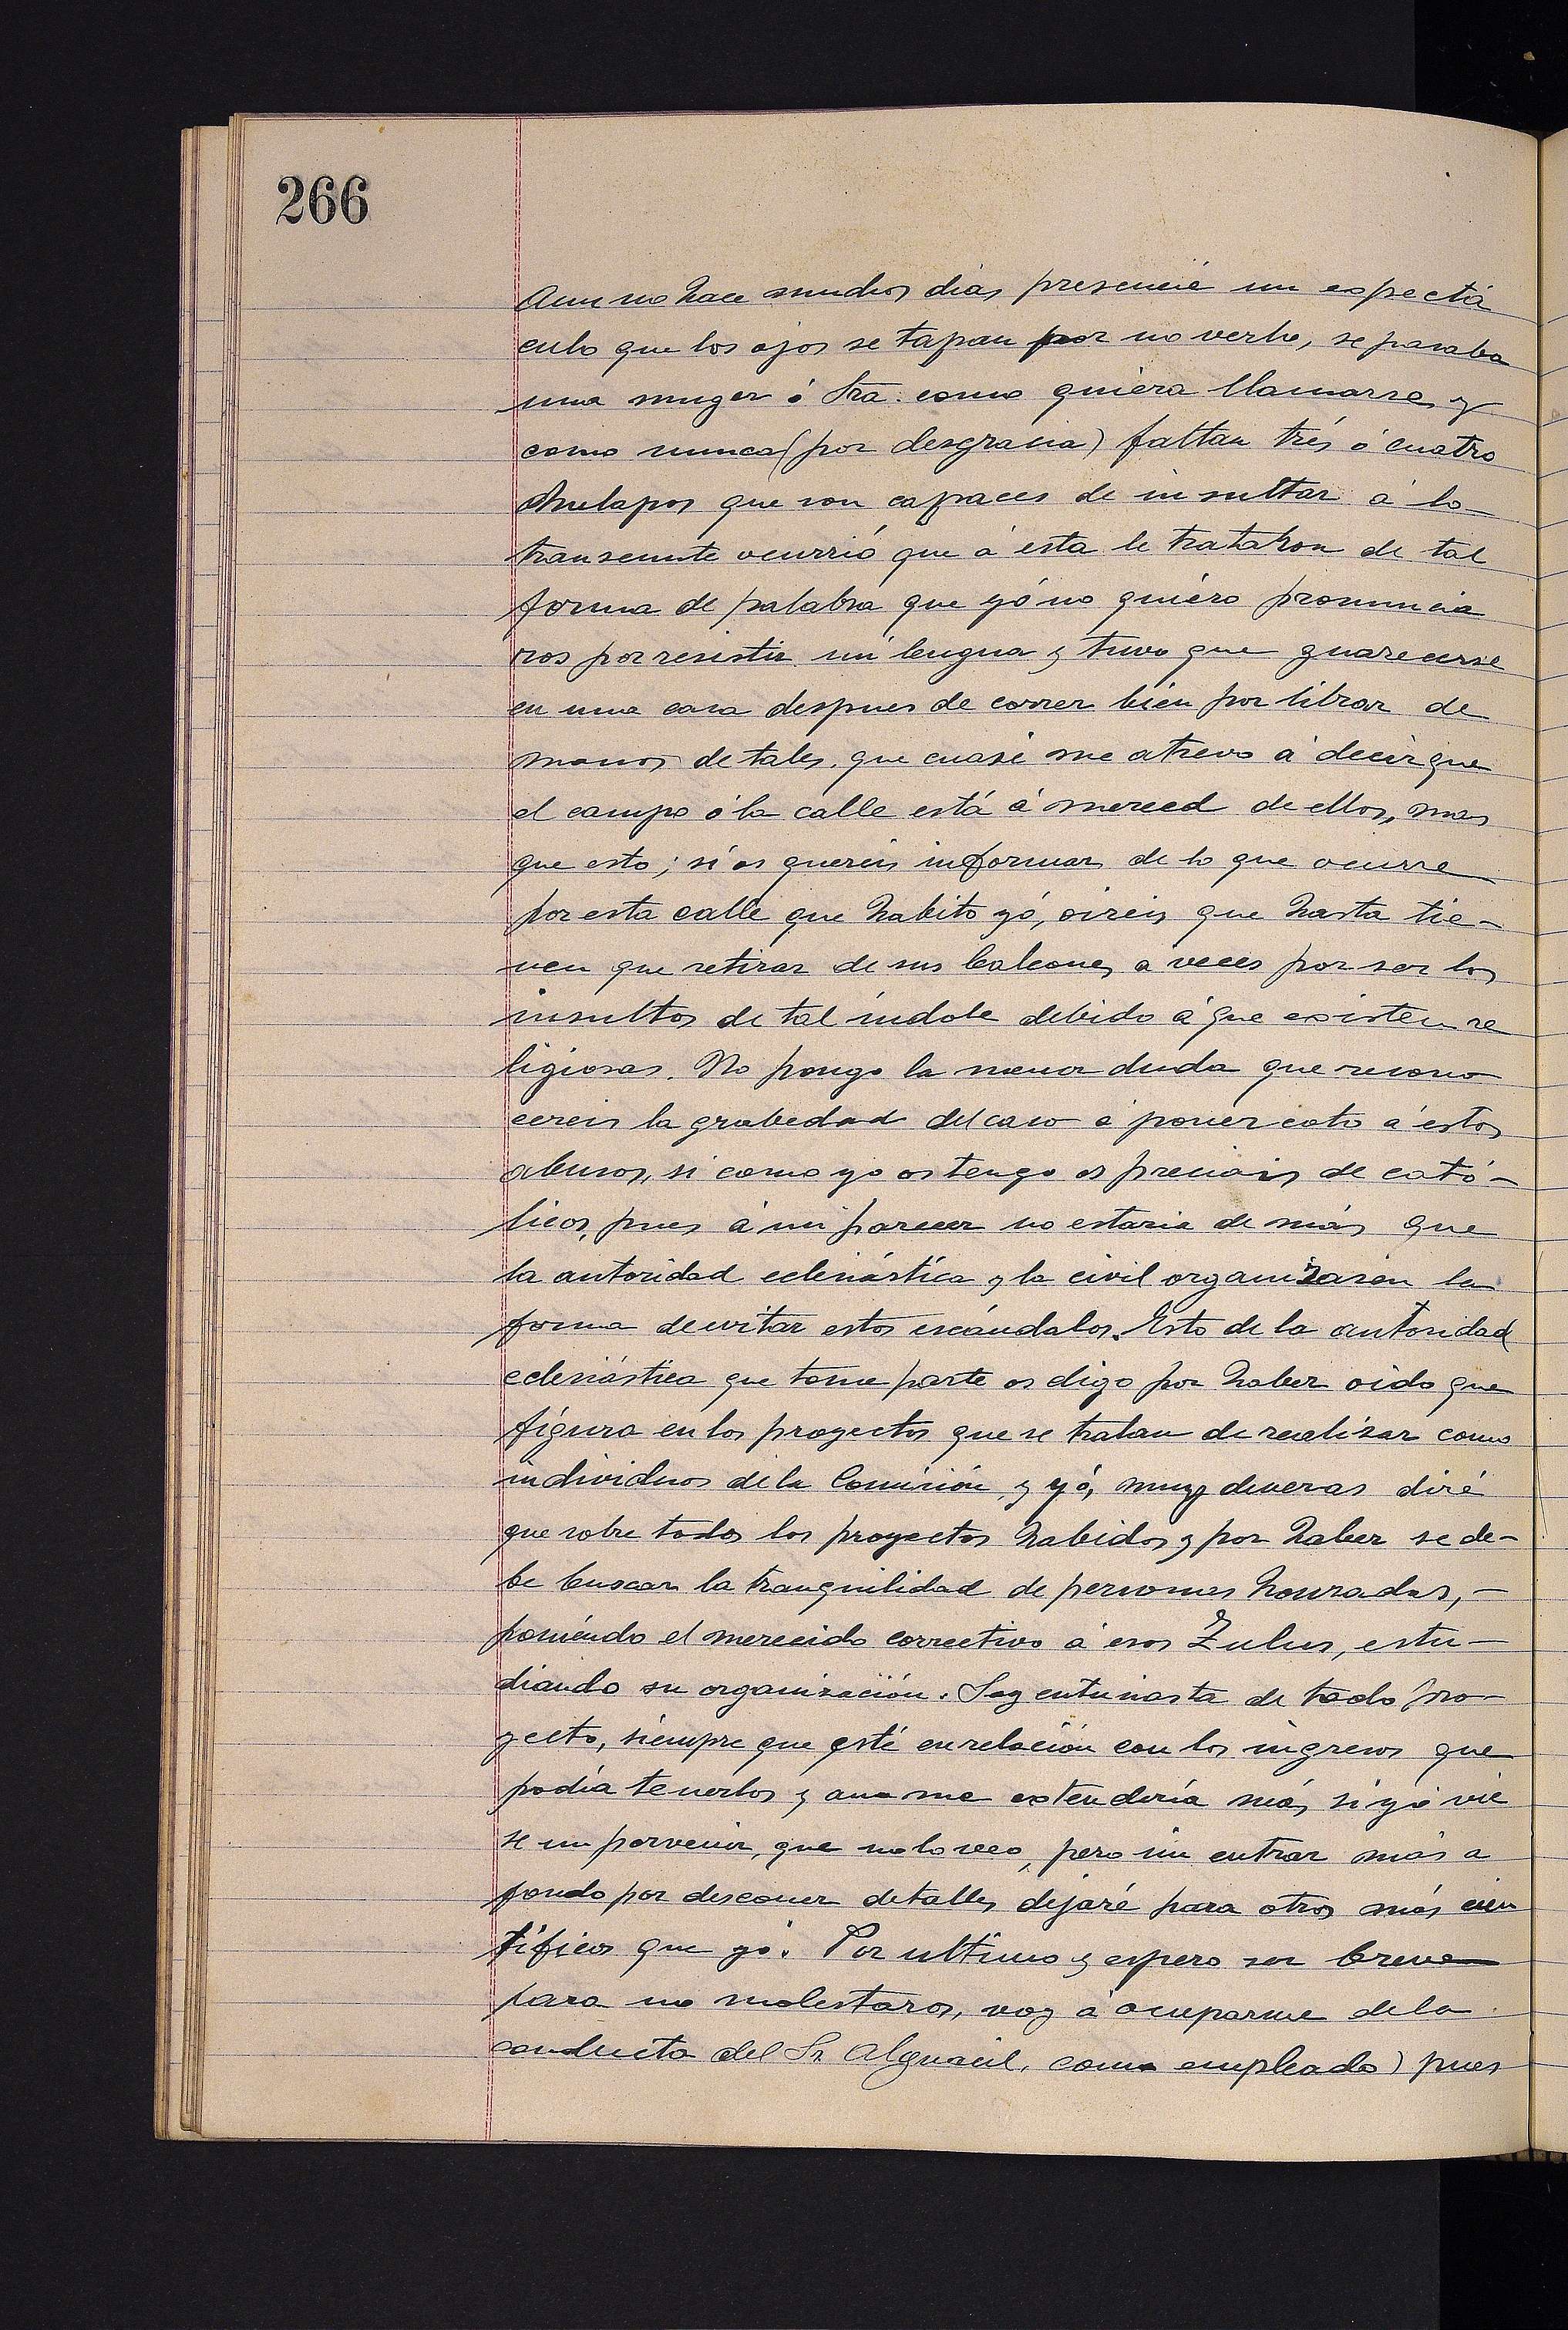 266
Aun no hace muchos días presencié un expectá
culo que los ojos se tapan por no verlo, se pasaba
una muger ó Sra. como quiera llamarse, y
como nunca (por desgracia) faltan trés ó cuatro
que son capaces de insultar á lo
transeunte ocurrió que á esta le trataron de tal
forma de palabra que yó no quiero pronuncia
ros por resistir mi lengua y tuvo que guarecerse
en una casa despues de correr bien por librar de
manos de tales, que cuasi me atrevo á decir que
el campo ó la calle está á merced de ellos, mas
que esto; si os quereis informar de lo que ocurre
por esta calle que habito yó, oireis que hasta tie-
nen que retirar de sus balcones a veces por ser los
insultos de tal índole debido á que existen re
ligiosas. No pongo la menor duda que recono
cereis la grabedad del caso á poner coto á estos
abusos, si como yo os tengo os preciais de cató-
licos, pues á mi parecer no estaria de más que
la autoridad eclesiástica y la civil organizasen la
forma de evitar estos escándalos. Esto de la autoridad
eclesiástica que tome parte os digo por haber oido que
figura en los proyectos que se tratan de realizar como
individuos de la Comisión, y yó, muy deveras diré
que sobre todos los proyectos habidos y por haber se de-
be buscar la tranquilidad de personas honradas, -
poniéndo el merecido correctivo á esos Zulus, estu-
diando su organización. Soy entusiasta de todo pro-
yecto, siempre que esté en relación con los ingresos que
podía tenerlos y aun me extendería más si yó vie
se un porvenir, que no lo veo, pero sin entrar más a
fondo por desconocer detalles dejaré para otros más cien
tíficos que yó. Por ultimo y espero ser breve
para no molestaros, voy á ocuparme de la
conducta del Sr Alguacil, como empleado) pues